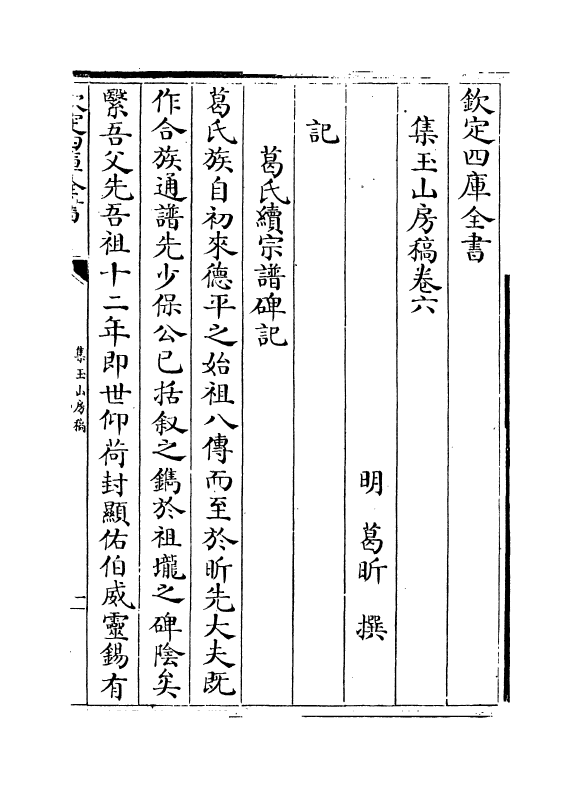 欽定四庫全書
集玉山房稿卷六
明 葛昕 撰
記
葛氏續宗譜碑記
葛氏族自初來德平之始祖八傳而至於昕先大夫既
作合族通譜先少保公已括叙之鐫於祖壠之碑陰矣
繄吾父先吾祖十二年即世仰荷封顯佑伯威靈錫有
集玉山房稿